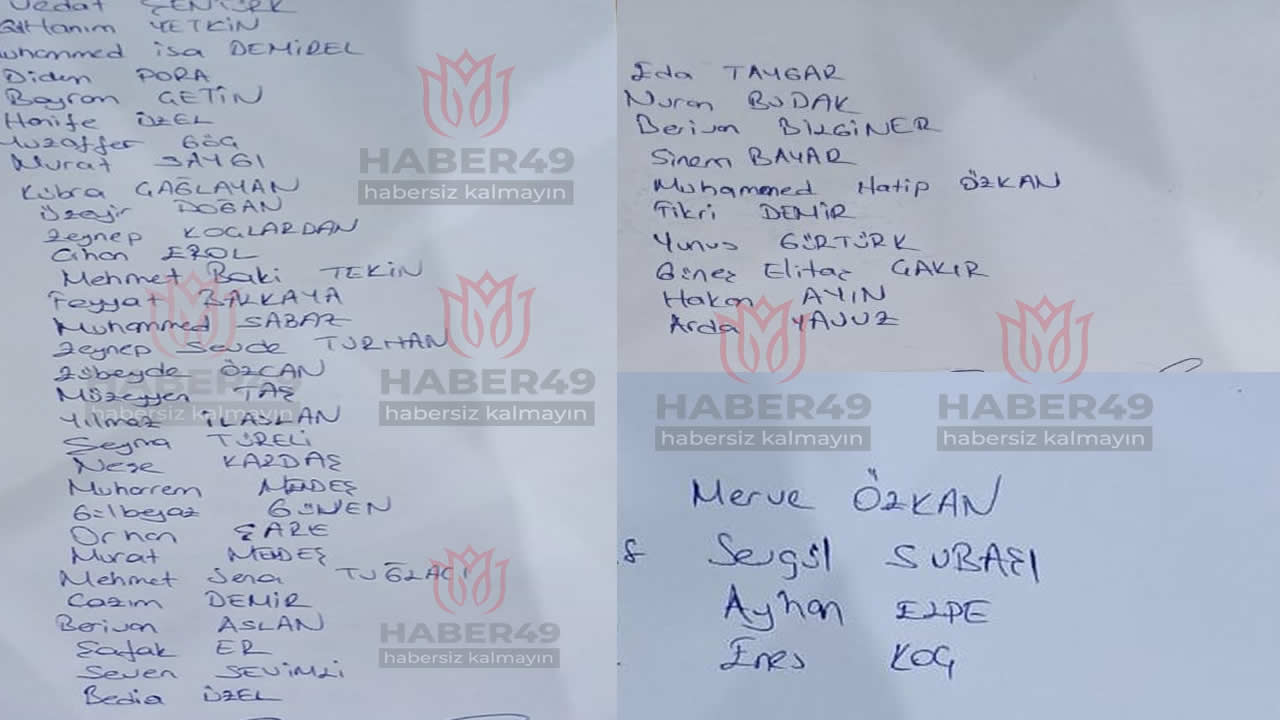 Vedat ŞENTÜRK
Hanım YETKİN
Muhammed isa DEMİREL
Didem PORA
Bayram ÇETİN
Hanife ÜZEL
Muzaffer GÖÇ
Murat SAYGI
Kübra ÇAĞLAYAN
Üzeyir DOĞAN
Zeynep KOÇLARDAN
Cihan EROL
Mehmet Baki TEKİN
Feyyat BALKAYA
Muhammed SABAZ
Zeynep Sevde TURHAN
Zübeyde ÖZCAN
Müzeyyen TAŞ
Yılmaz İLASLAN
Seyma TÜRELİ
Neşe KAZDAŞ
Muharrem MEDEŞ
Gülbeyaz GÜNEN
Orhan ŞARE
Murat MEDEŞ
Mehmet Sena TUĞLACI
Cazım DEMİR
Berivan ASLAN
Şafak ER
Seven SEVİMLİ
Bedia ÜZEL
HABER49
habersiz kalmayın
HABER49
habersiz kalmayın
HABER49
habersiz kalmayın
HABER49
habersiz kalmayın
Eda TAYGAR
Nuran BUDAK
Berivan BİLGİNER
Sinem BAYAR
Muhammed Hatip ÖZKAN
Fikri DEMİR
Yunus GÜRTÜRK
Güneş Elitaş ÇAKIR
Hakan AYIN
Arda YAVUZ
HABER49
habersiz kalmayın
HABER49
habersiz kalmayın
Merve ÖZKAN
Sevgül SUBAŞI
Ayhan ELPE
Enes KOÇ